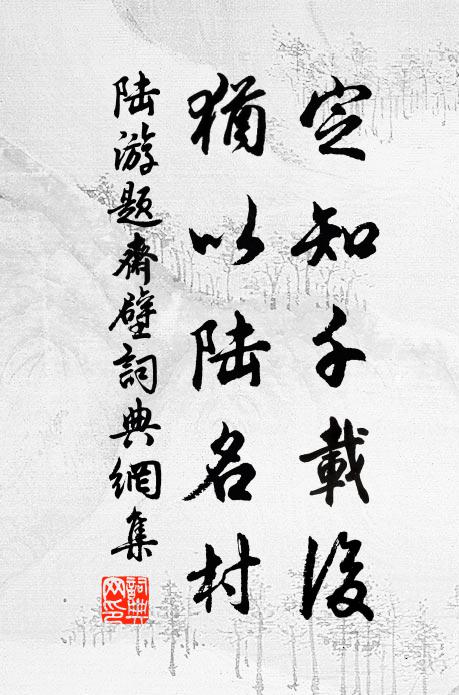 定知千載後
猶以陸名村
陸游题齋壁詞典網集
詞典網印